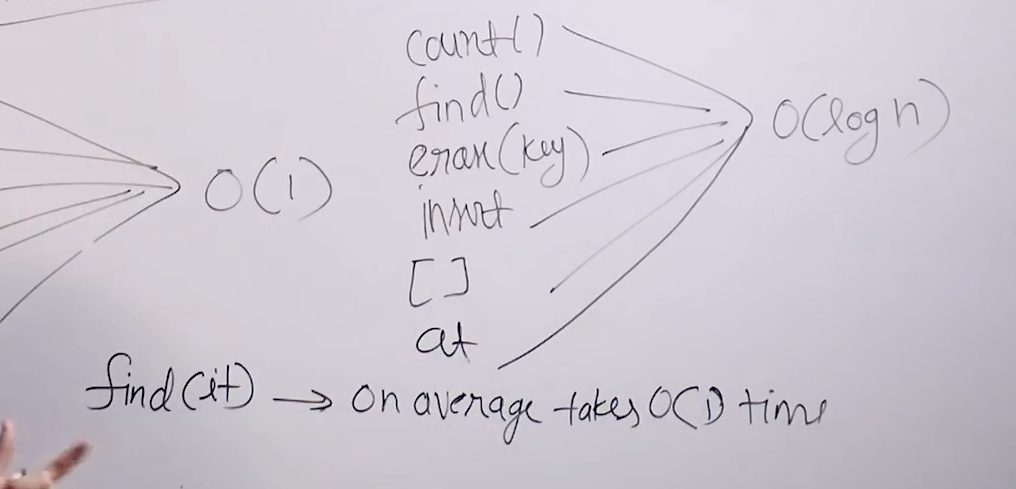 count()
find()
erase(key)
insert
[ ]
at
O(1)
O(log n)
find(it) → on average takes O(1) time